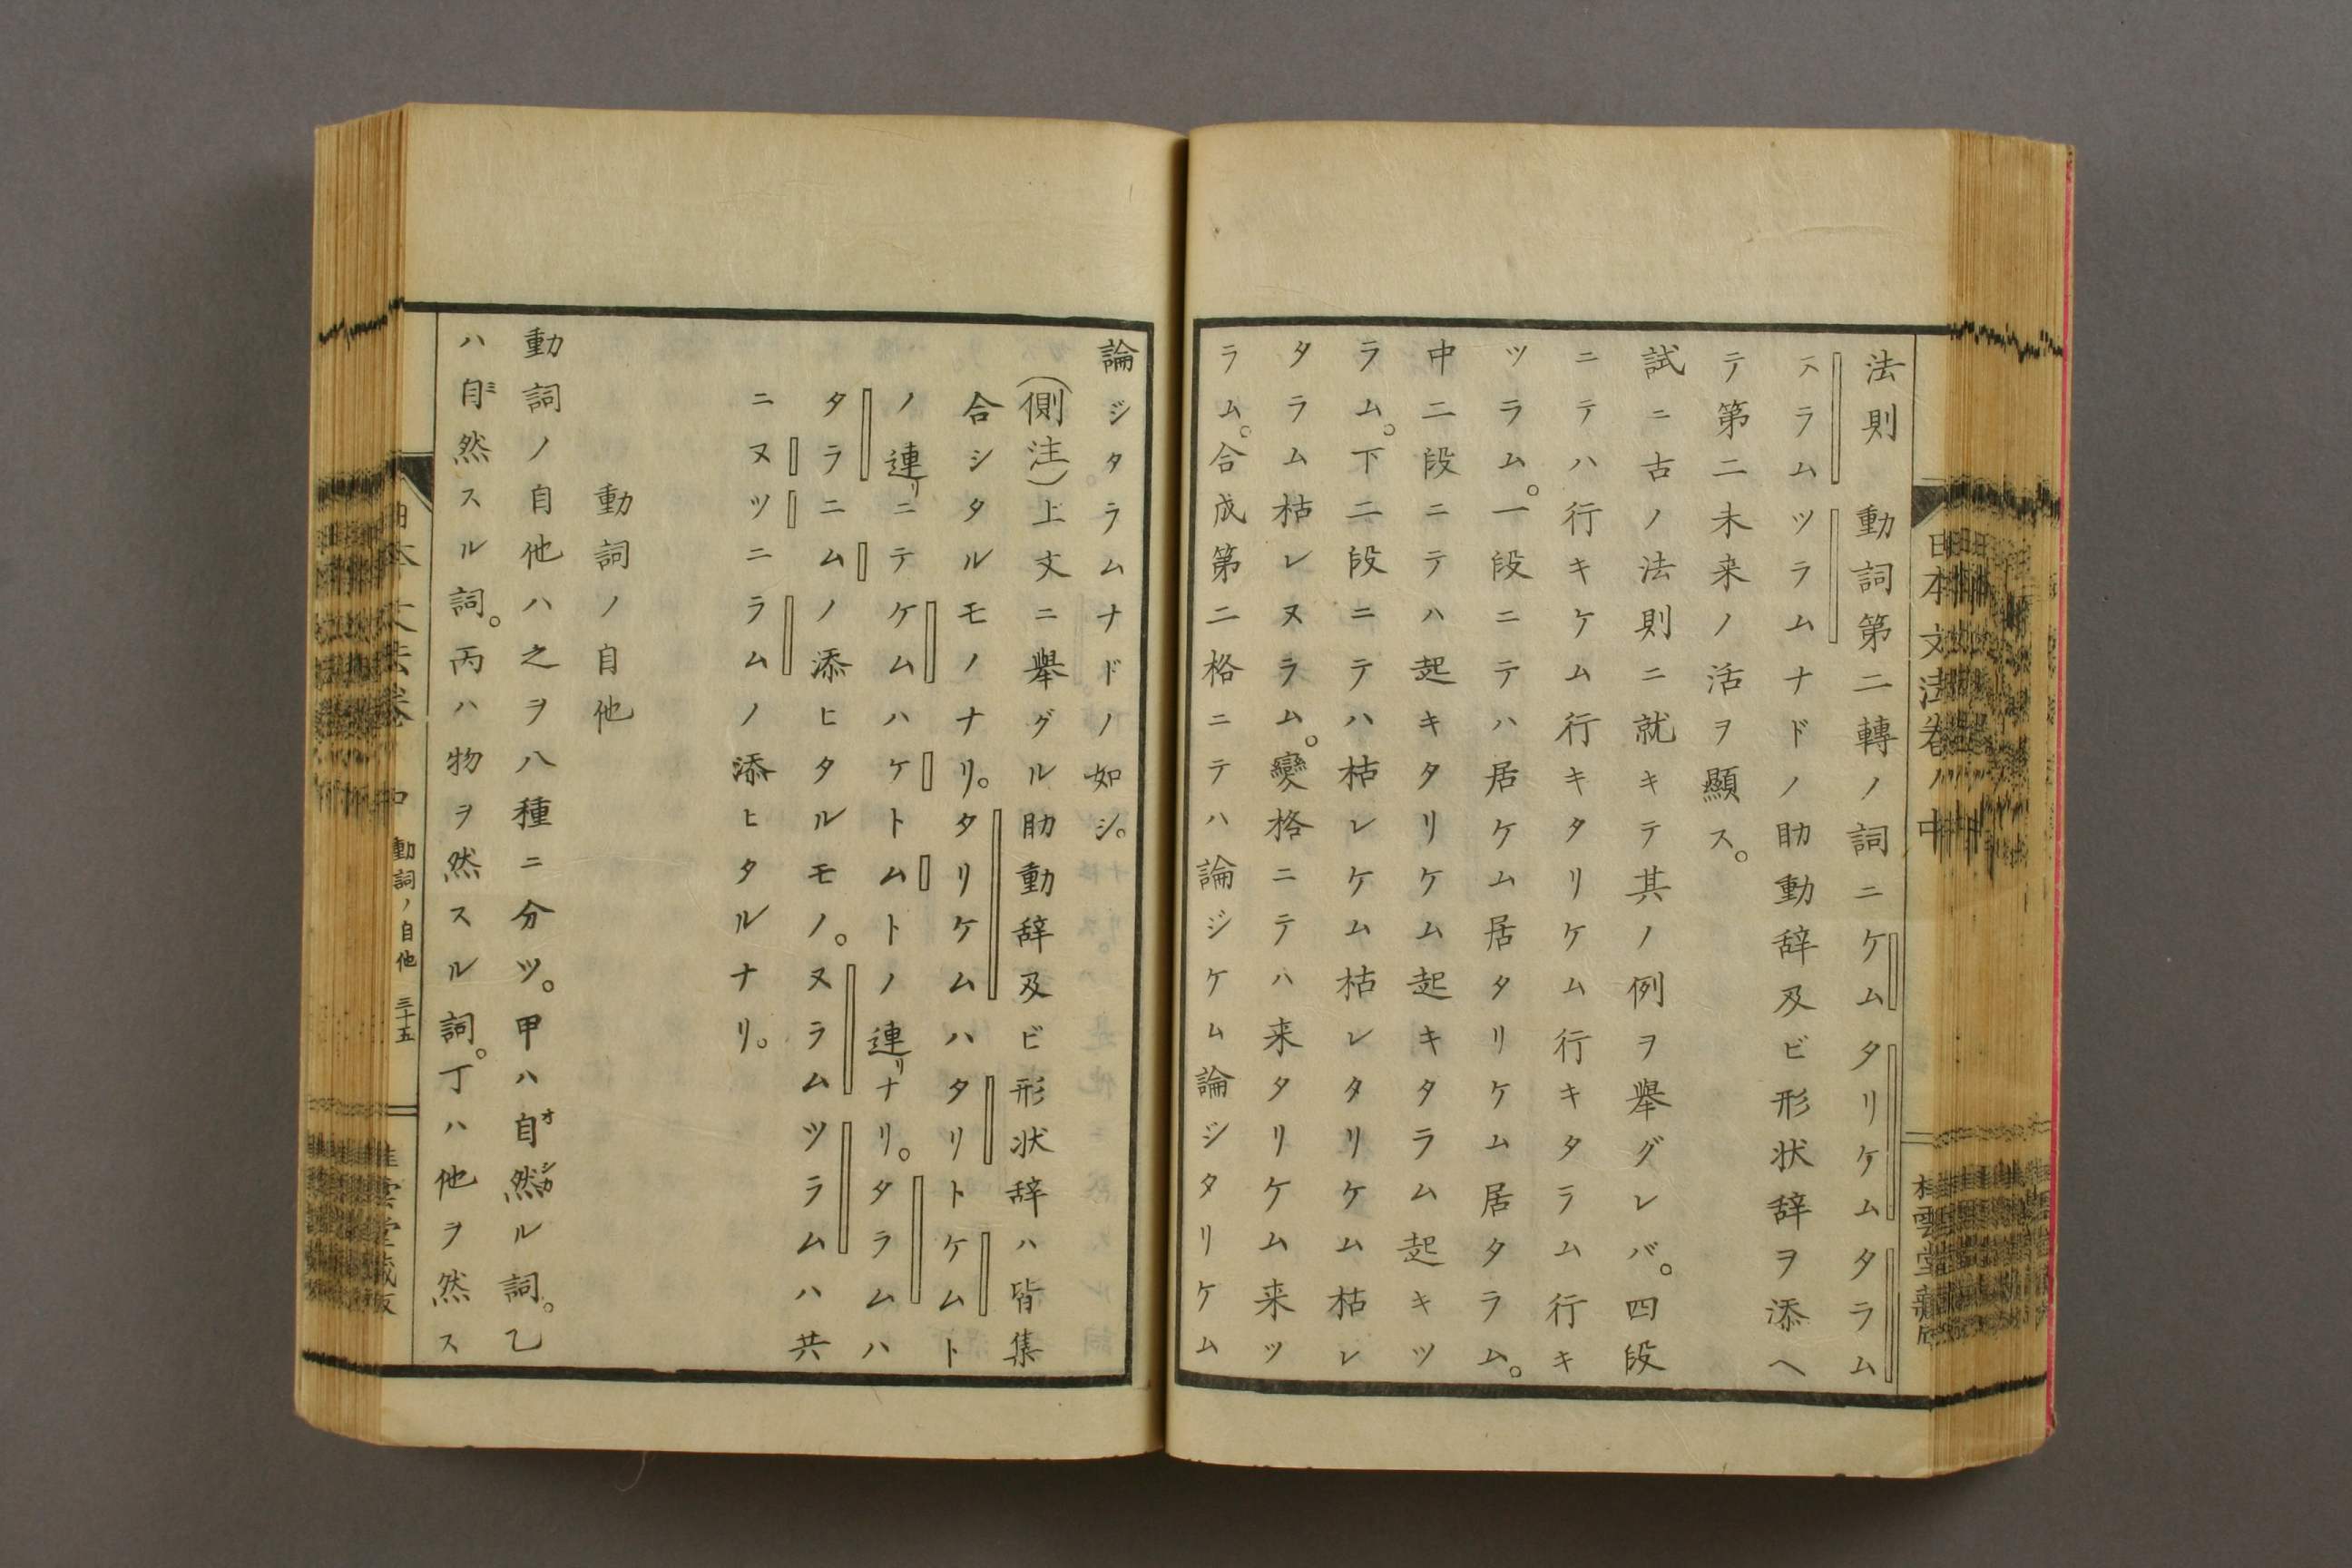 日本文法卷ノ中
法則 動詞第二轉ノ詞ニケムタリケムタラム
ヌラムツラムナドノ助動辞及ビ形状辞ヲ添ヘ
テ第二未来ノ活ヲ顯ス。
試ニ古ノ法則ニ就キテ其ノ例ヲ擧グレバ。四段
ニテハ行キケム行キタリケム行キタラム行キ
ツラム。一段ニテハ居ケム居タリケム居タラム。
中二段ニテハ起キタリケム起キタラム起キツ
ラム。下二段ニテハ枯レケム枯レタリケム枯レ
タラム枯レヌラム。變格ニテハ来タリケム来ツ
ラム。合成第二格ニテハ論ジケム論ジタリケム
論ジタラムナドノ如シ。
(側注)上文ニ擧グル助動辞及ビ形状辞ハ皆集
合シタルモノナリ。タリケムハタリトケムト
ノ連リニテケムハケトムトノ連リナリ。タラムハ
タラニムノ添ヒタルモノ。ヌラムツラムハ共
ニヌツニラムノ添ヒタルナリ。
動詞ノ自他
動詞ノ自他ハ之ヲ八種ニ分ツ。甲ハ自オ然シカル詞。乙
ハ自ミ然スル詞。丙ハ物ヲ然スル詞。丁ハ他ヲ然ス
日本文法卷 中 動詞ノ自他 三十五